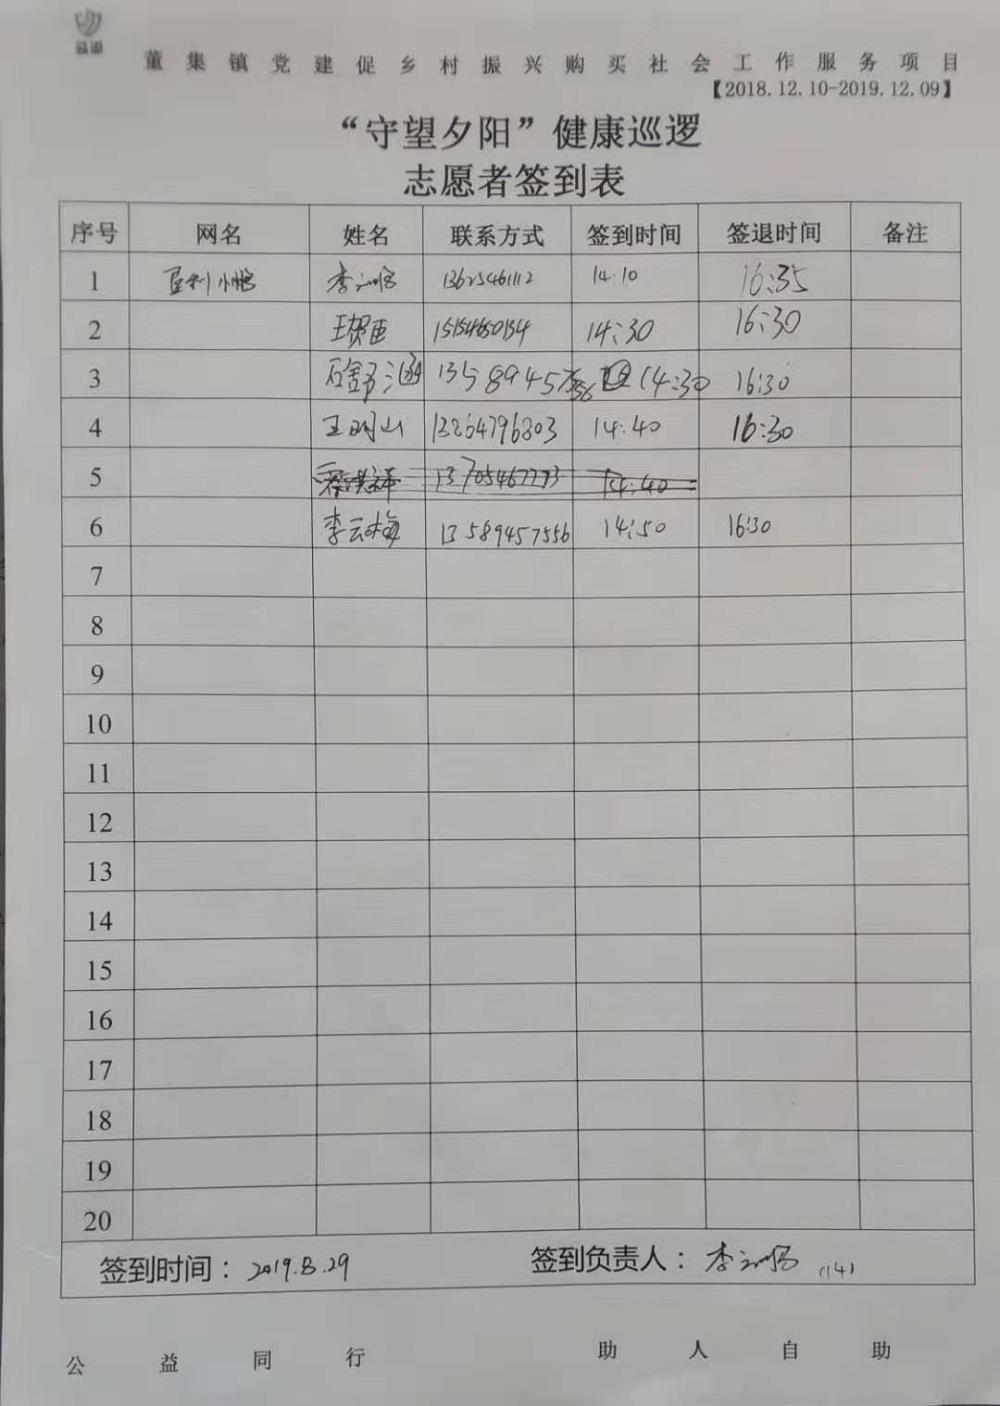 董集镇党建促乡村振兴购买社会工作服务项目
【2018.12.10-2019.12.09】
“守望夕阳”健康巡逻
志愿者签到表
序号 网名 姓名 联系方式 签到时间 签退时间 备注
1 13625461112 14:10 16:35
2 王贺臣 15154650134 14:30 16:30
3 石舒涵 14:30 16:30
4 王明山 13264796803 14:40 16:30
5 13705467793 14:40
6 李云梅 13589457556 14:50 16:30
7
8
9
10
11
12
13
14
15
16
17
18
19
20
签到时间：2019.8.29 签到负责人： (14)
公益同行 助人自助